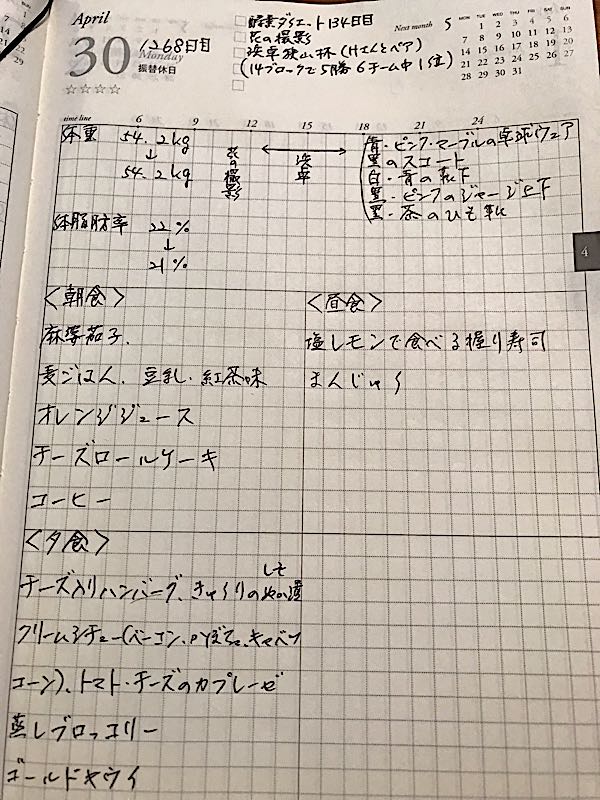 April
30
1268日目
Monday
振替休日
☆☆☆☆
酵素ダイエット134日目
花の撮影
浜卓狭山杯(Hさんとペア)
(14ブロックで5勝 6チーム中1位)
Next month 5
MON TUE WED THU FRI SAT SUN
1 2 3 4 5 6
7 8 9 10 11 12 13
14 15 16 17 18 19 20
21 22 23 24 25 26 27
28 29 30 31
time line 6 9 12 15 18 21 24
体重 54.2kg
↓
54.2kg
花の撮影
浜卓
青・ピンク・マーブルの卓球ウェア
黒のスコート
白・青の靴下
黒・ピンクのジャージ上下
黒・茶のひも靴
体脂肪率 22%
↓
21%
4
<朝食>
麻婆茄子、
麦ごはん、豆乳・紅茶味
オレンジジュース
チーズロールケーキ
コーヒー
<昼食>
塩レモンで食べる握り寿司
まんじゅう
<夕食>
チーズ入りハンバーグ、きゅうりのぬか漬
しそ
クリームシチュー(ベーコン、かぼちゃ、キャベツ
コーン)、トマト・チーズのカプレーゼ
蒸しブロッコリー
ゴールドキウイ